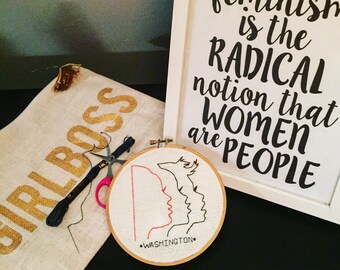 feminism
is the
RADICAL
notion that
WOMEN
are PEOPLE
GIRLBOSS
•WASHINGTON•